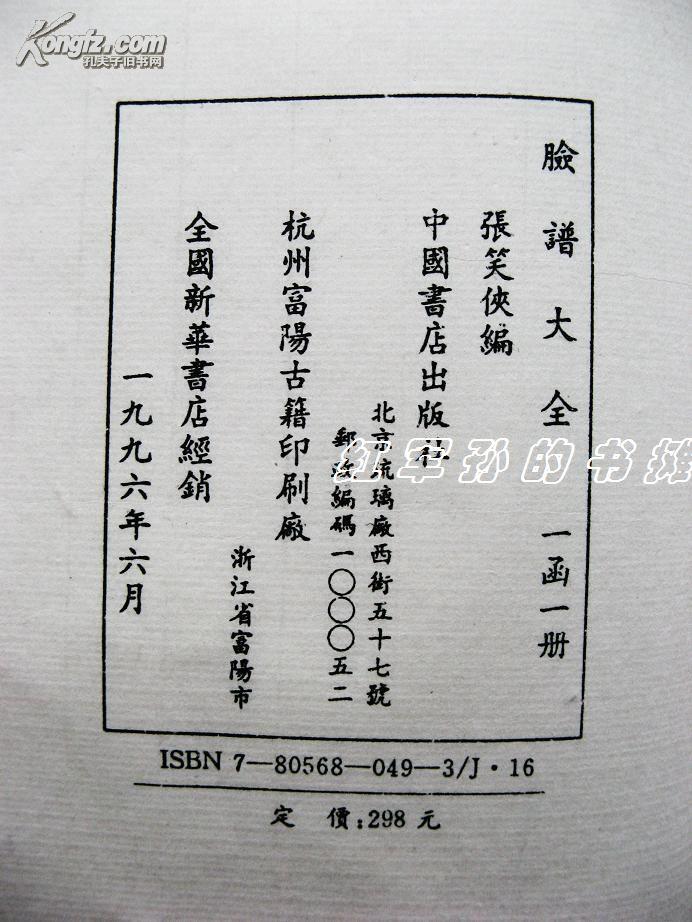 Kongfz.com
孔夫子旧书网
臉譜大全 一函一册
張笑俠編
中國書店出版社
北京琉璃廠西街五十七號
郵政編碼一〇〇〇五二
杭州富陽古籍印刷廠
浙江省富陽市
全國新華書店經銷
一九九六年六月
红军孙的书摊
ISBN 7—80568—049—3/J·16
定 價:298元